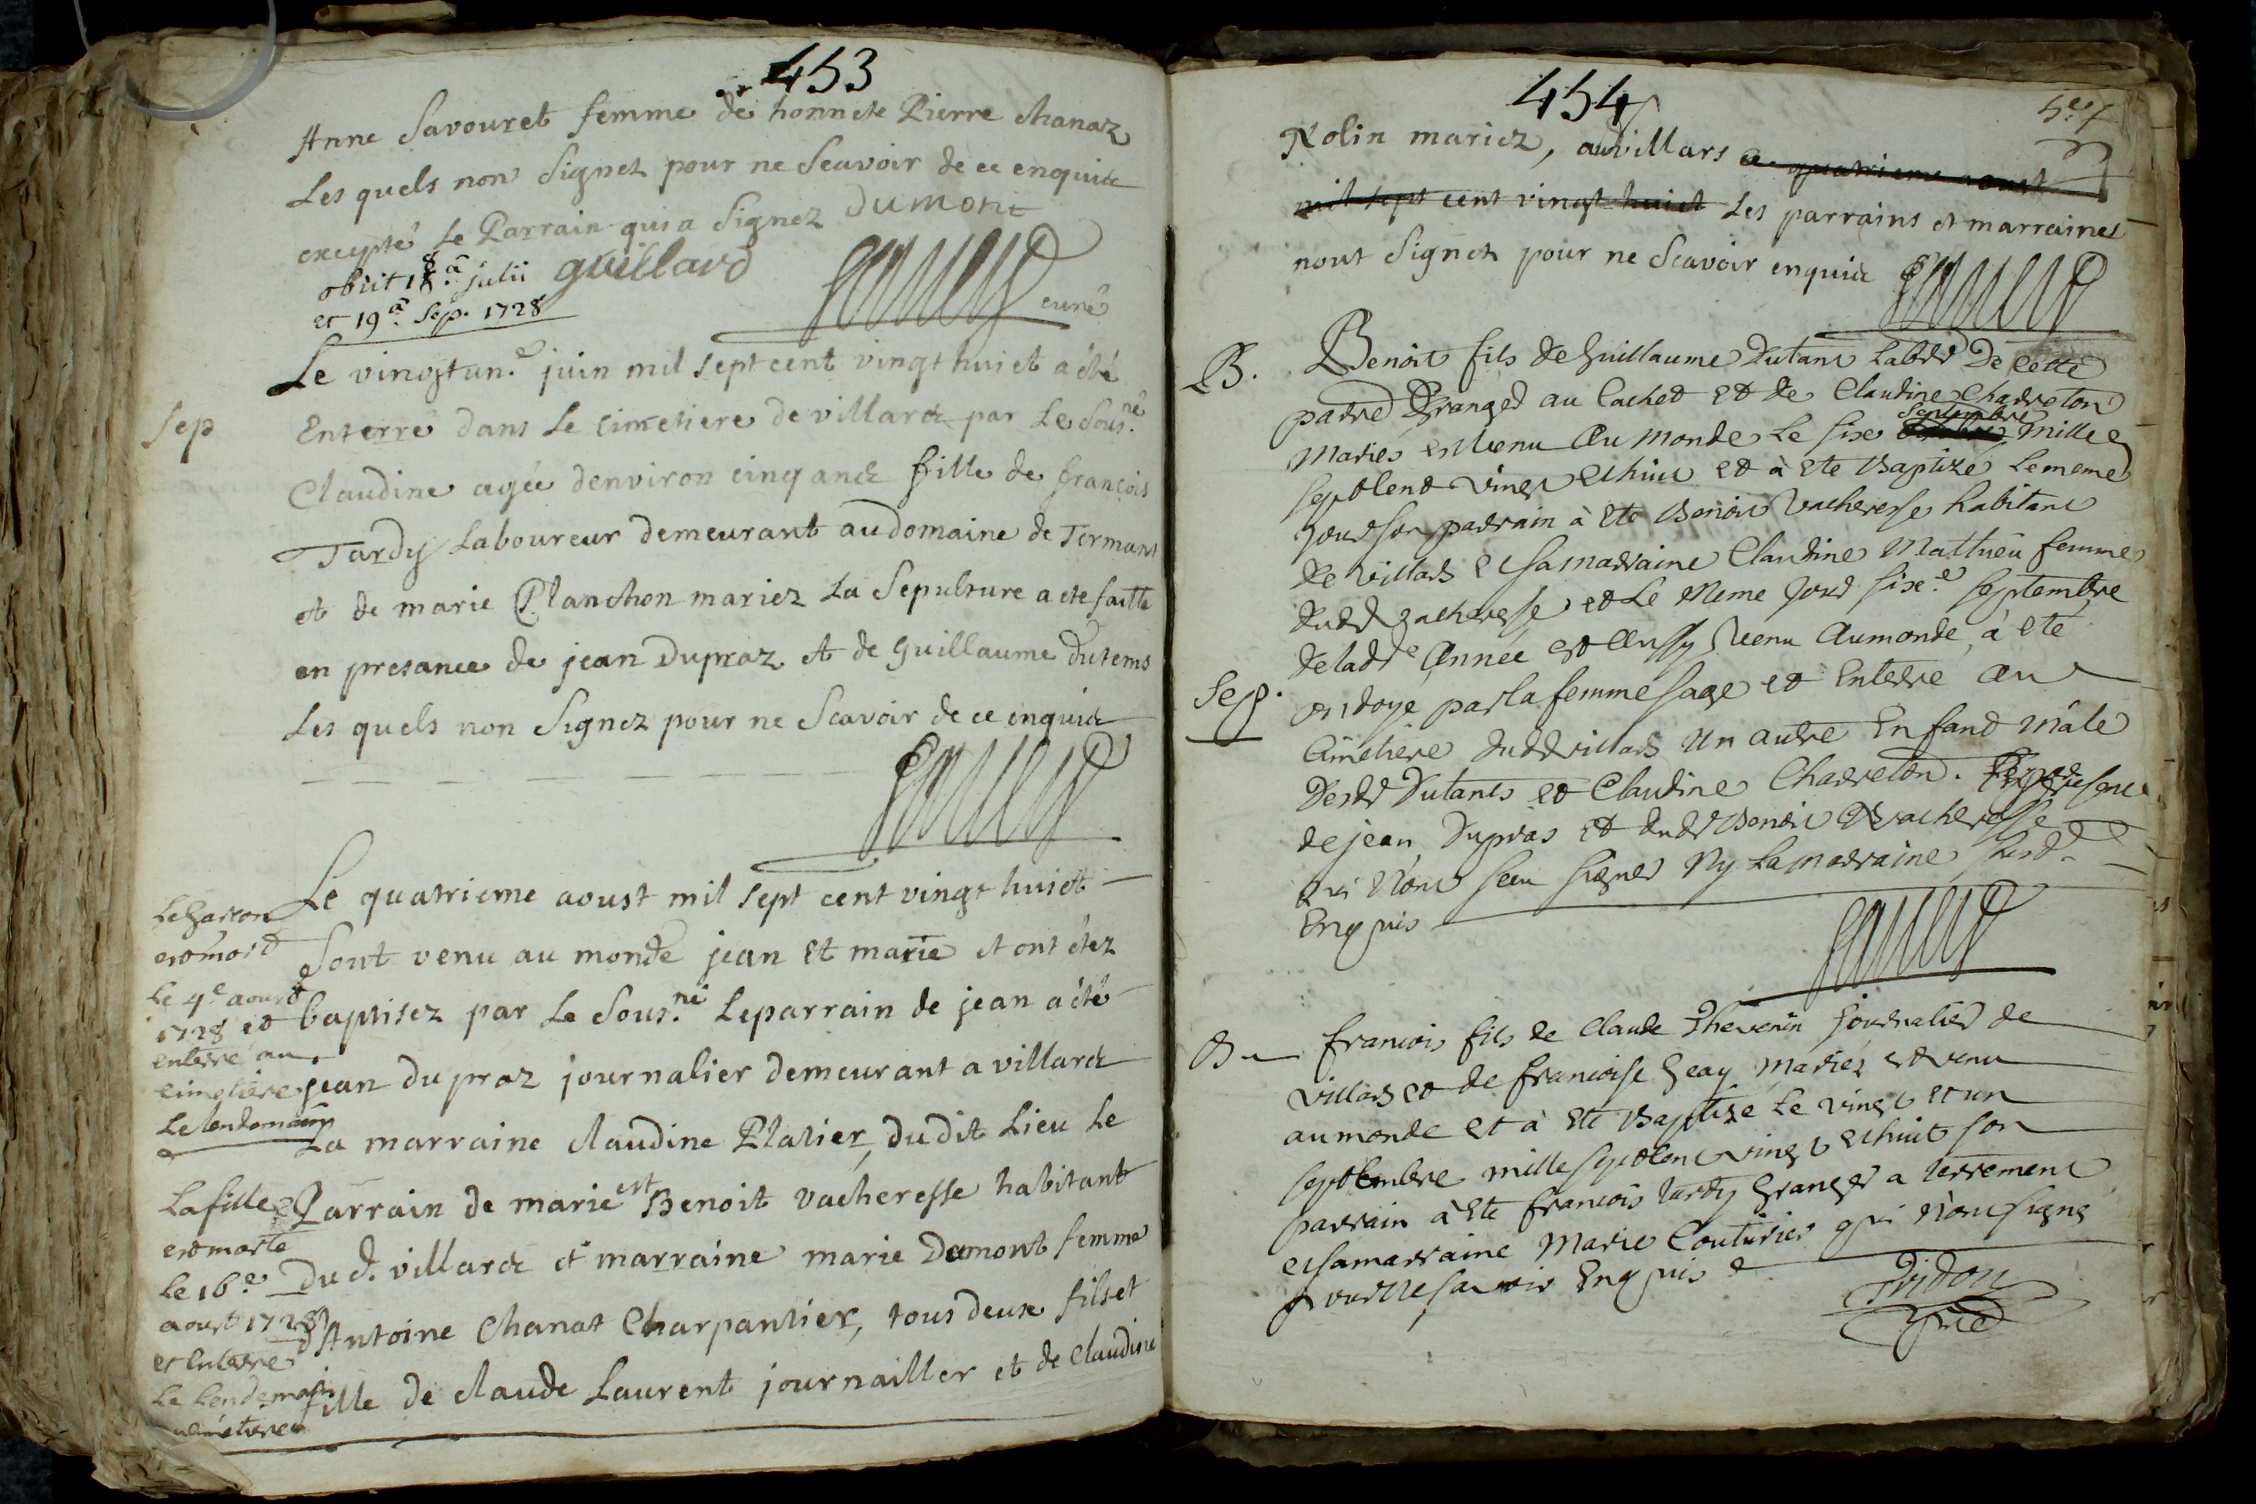 453
Anne Savouret femme de honnete Pierre chanaz
Les quels non Signez pour ne Scavoir de ce enquit
excepté Le Parrain qui a Signez Dumont
obiit 18.a julii guillard
et 19.a Sep. 1728
curé
Le vingtun.e juin mil sept cent vingt huict a été
Sep
Enterré dans Le Cimetiere de villard par Le Sous.né
Claudine agée denviron cinq ans fille de françois
Tardy Laboureur demeurant au domaine de Termant
et de marie Planchon mariez La Sepulture a ete faitte
en presance de jean Dupraz et de Guillaume dutems
Les quels non Signez pour ne Scavoir de ce enquit
Le quatrieme aoust mil sept cent vingt huict
Sont venu au monde jean et marie et ont étez
baptisez par Le Sous.né Le parrain de jean a été
jean dupraz journalier demeurant a villard
La marraine claudine Platier, dudit Lieu Le
Parrain de marie est Benoit vacheresse habitant
Du d. villard et marraine marie Dumont femme
d'Antoine Chanat Charpantier, tous deux fils et
fille de claude Laurent journailler et de claudine
Le Garson
est mort
Le 4e aoust
1728 et
enterré au
cimetiere
Le lendemain
La fille
est morte
Le 16.e
aoust 1728
et Enterré
Le Lendemain
454
Nolin mariez, au villars ce quatrieme aoust
mil sept cent vingt huict Les parrains et marraines
nont Signez pour ne Scavoir enquit
B.
Benoit fils de Guillaume Dutant Lab. De Cette
parr. Granger au Cachet et de Claudine Charreton
Mariés est venu au monde Le six Septembre mille
sept Cent vingt et huit et à été Baptizé Le meme
jour son parrain à été Benoit vacheresse habitant
de villars et sa marraine Claudine Mathieu femme
dud. vacheresse et Le Meme jour six.e septembre
de lad.e Année est aussy venu au monde, à été
Sep.
ondoyé par la femme sage et Enterré au
Cimetiere dud. villars un autre Enfant mâle
Desd. Dutants et Claudine Charreton. En presence
de jean Dupras et dud. Benoit Vacheresse
qui n'ont sceu signer Ny La marraine susd.
Enquis
B
francois fils de Claude Thevenin journalier de
villars et de francoise Geay mariéz est venu
au monde et à été Baptizé Le vingt et un
septembre mille sept Cent vingt et huit son
parrain à été francois tardy Granger a terrement
et sa marraine Marie Couturier qui n'ont signé
pour ne savoir Enquis